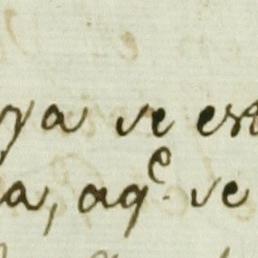 ya ve es
a, aq.e ve